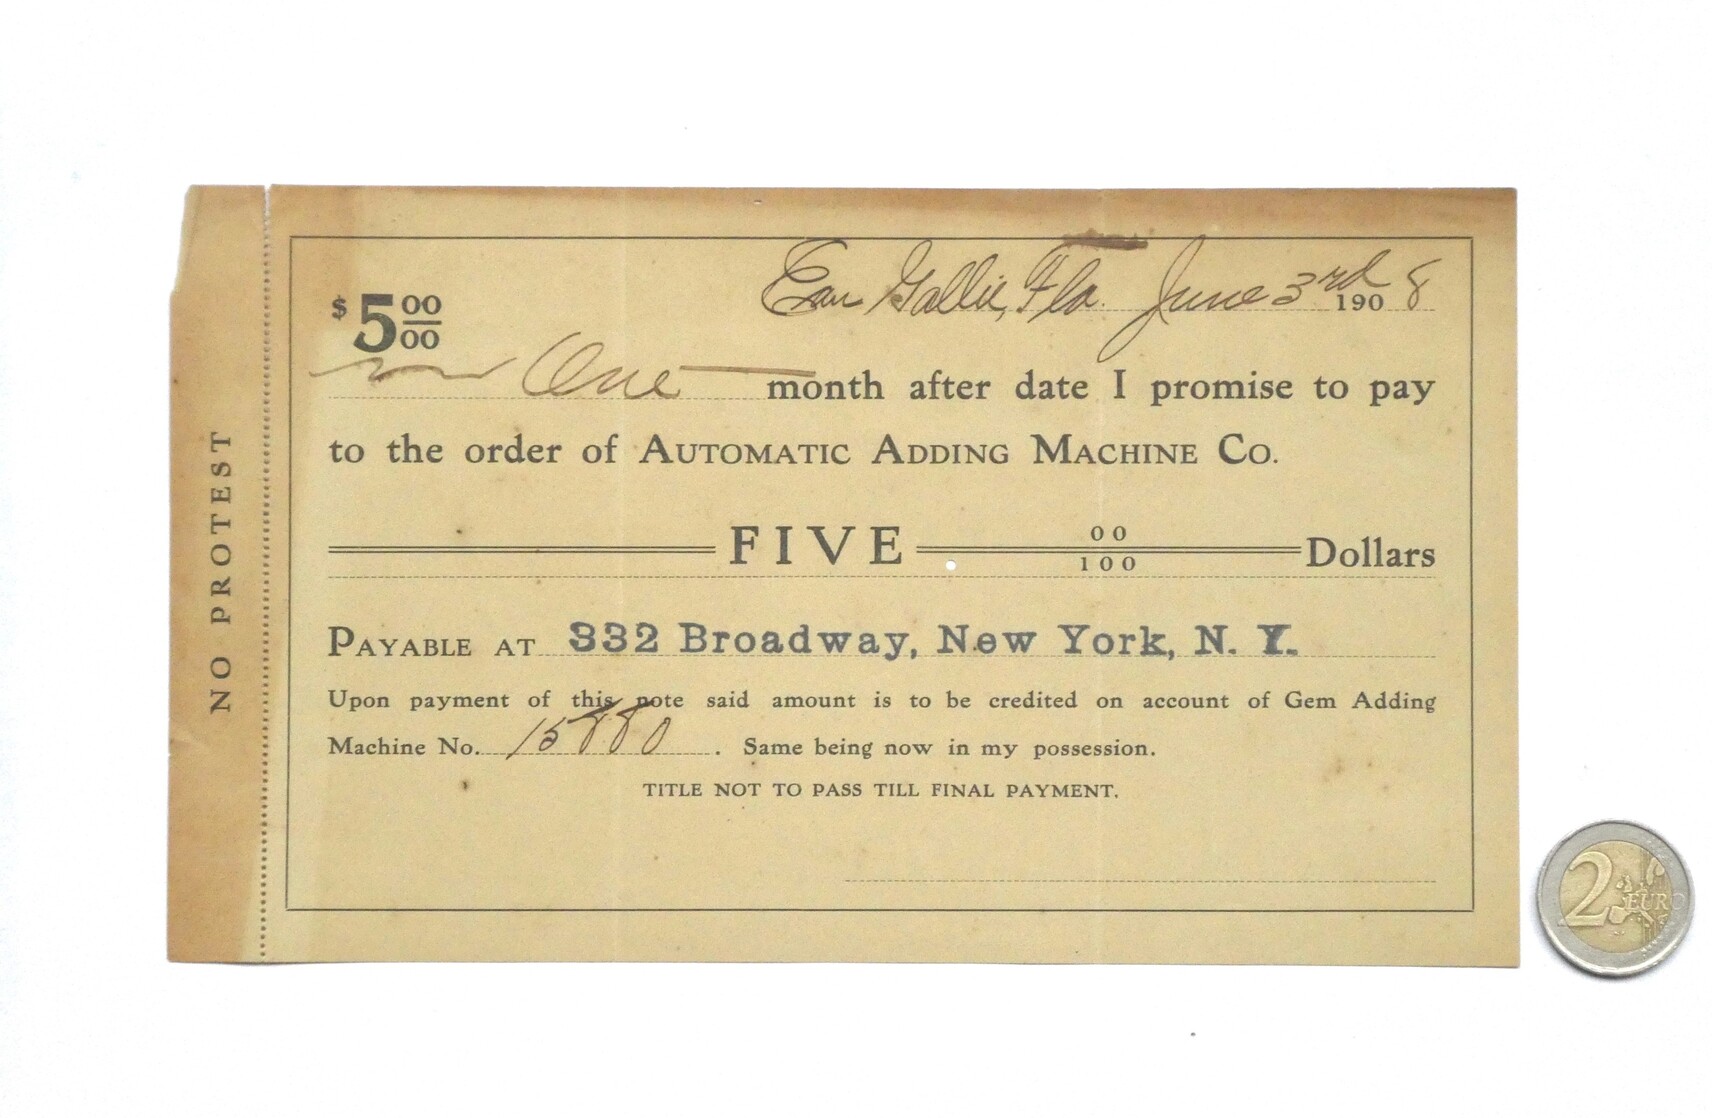 NO PROTEST
$5 00/00
Eau Gallie, Fla. June 3rd 1908
One month after date I promise to pay
to the order of AUTOMATIC ADDING MACHINE CO.
FIVE 00/100 Dollars
PAYABLE AT 332 Broadway, New York, N. Y.
Upon payment of this note said amount is to be credited on account of Gem Adding
Machine No. 15880. Same being now in my possession.
TITLE NOT TO PASS TILL FINAL PAYMENT.
2 EURO